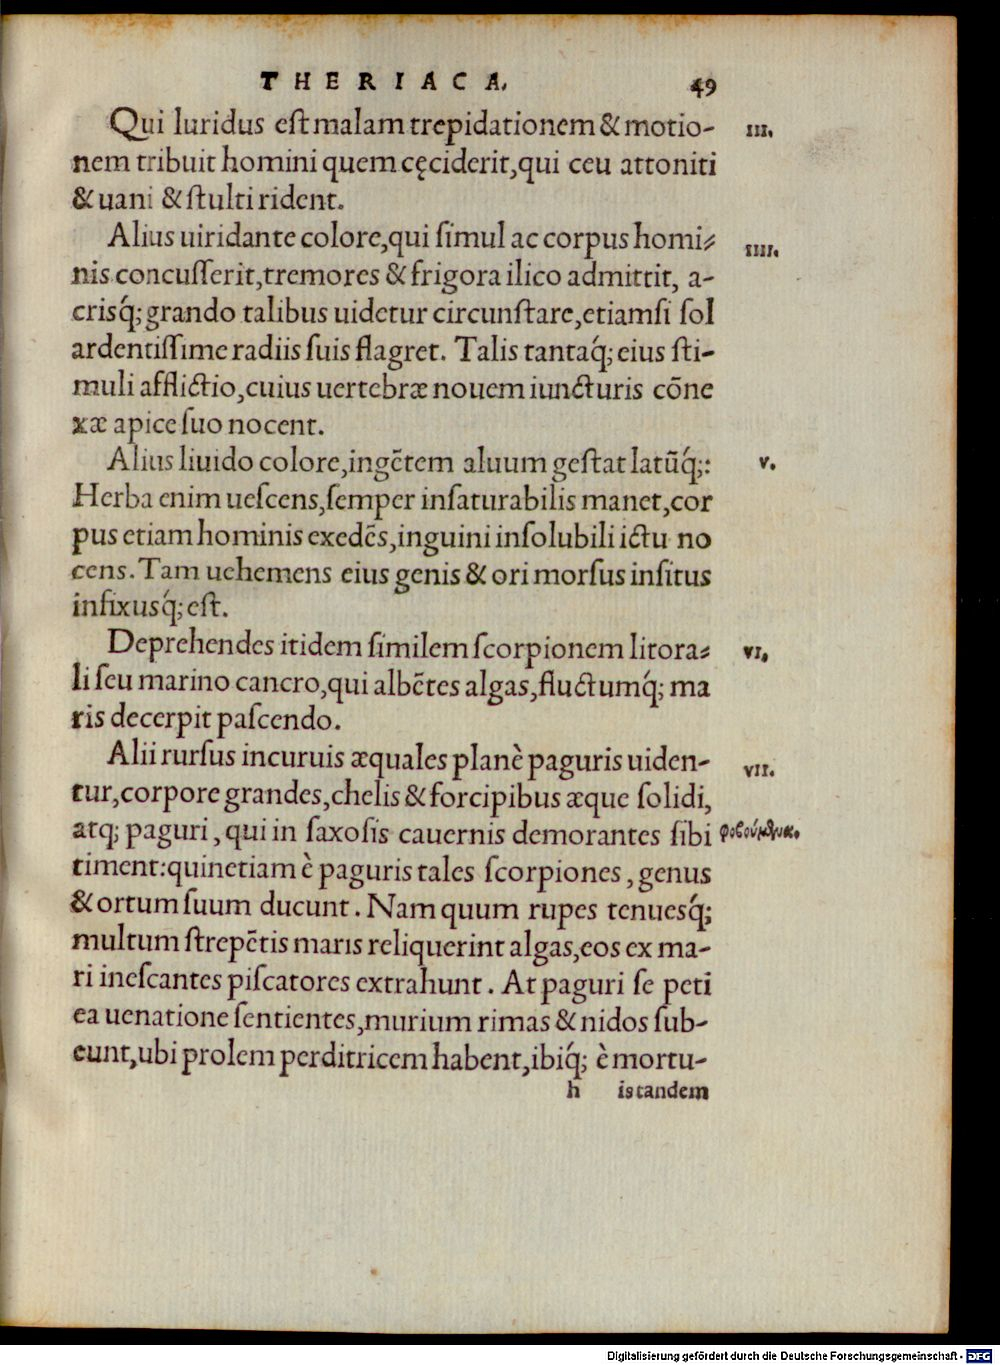 THERIACA. 49
Qui luridus est malam trepidationem & motio- III.
nem tribuit homini quem cęciderit, qui ceu attoniti
& uani & stulti rident.
Alius uiridante colore, qui simul ac corpus homi- IIII.
nis concusserit, tremores & frigora ilico admittit, a-
crisq́; grando talibus uidetur circunstare, etiamsi sol
ardentissime radiis suis flagret. Talis tantaq́; eius sti-
muli afflictio, cuius uertebræ nouem iuncturis cōne
xæ apice suo nocent.
Alius liuido colore, ingētem aluum gestat latūq́;: V.
Herba enim uescens, semper insaturabilis manet, cor
pus etiam hominis exedēs, inguini insolubili ictu no
cens. Tam uehemens eius genis & ori morsus insitus
infixusq́; est.
Deprehendes itidem similem scorpionem litora- VI.
li seu marino cancro, qui albētes algas, fluctumq́; ma
ris decerpit pascendo.
Alii rursus incuruis æquales planè paguris uiden- VII.
tur, corpore grandes, chelis & forcipibus æque solidi,
atq; paguri, qui in saxosis cauernis demorantes sibi
timent: quinetiam è paguris tales scorpiones, genus
& ortum suum ducunt. Nam quum rupes tenuesq́;
multum strepētis maris reliquerint algas, eos ex ma-
ri inescantes piscatores extrahunt. At paguri se peti
ea uenatione sentientes, murium rimas & nidos sub-
eunt, ubi prolem perditricem habent, ibiq́; è mortu-
h is tandem
Digitalisierung gefördert durch die Deutsche Forschungsgemeinschaft - DFG